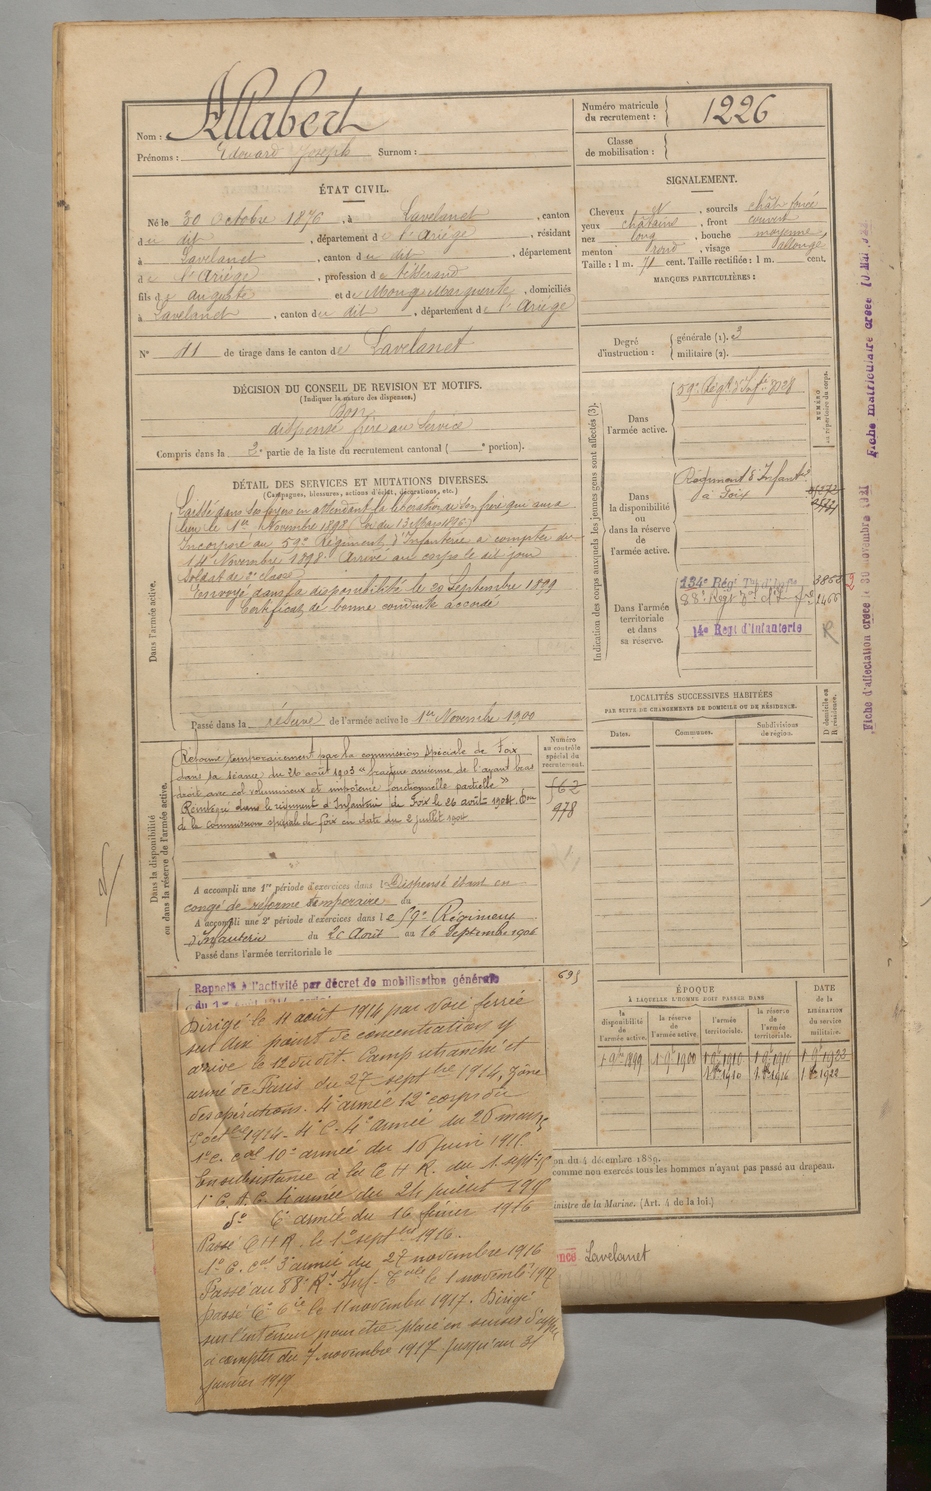 Nom : Allabert
Prénoms : Edouard Joseph Surnom :
Numéro matricule du recrutement : 1226
Classe de mobilisation :
ÉTAT CIVIL.
Né le 30 Octobre 1876, à Lavelanet, canton
du dit, département de l'Ariège, résidant
à Lavelanet, canton du dit, département
de l'Ariège, profession de tisserand
fils de Auguste et de Marguerite, domiciliés
à Lavelanet, canton du dit, département de l'Ariège
N° 11 de tirage dans le canton de Lavelanet
SIGNALEMENT.
Cheveux , sourcils chât foncé
yeux châtains, front couvert
nez long, bouche moyenne
menton rond, visage allongé
Taille : 1 m. 71 cent. Taille rectifiée : 1 m. cent.
MARQUES PARTICULIÈRES :
Degré d'instruction : générale (1). 3
militaire (2).
DÉCISION DU CONSEIL DE REVISION ET MOTIFS.
(Indiquer la nature des dispenses.)
Bon
dispensé frère au service
Compris dans la 2e partie de la liste du recrutement cantonal ( e portion).
DÉTAIL DES SERVICES ET MUTATIONS DIVERSES.
(Campagnes, blessures, actions d'éclat, décorations, etc.)
Dans l'armée active.
Laissé dans ses foyers en attendant la libération de son frère qui aura
lieu le 1er Novembre 1898 (
Incorporé au 59e Régiment d'Infanterie à compter du
14 Novembre 1898. Arrivé au corps le dit jour
Soldat de 2e classe
Envoyé dans la disponibilité le 20 Septembre 1899
Certificat de bonne conduite accordé
Passé dans la réserve de l'armée active le 1er Novembre 1900
Indication des corps auxquels les jeunes gens sont affectés (3).
NUMÉRO au répertoire du corps.
Dans l'armée active.
59e Régt d'Infie 8028
Dans la disponibilité ou dans la réserve de l'armée active.
Régiment d'Infantie
à Foix
Dans l'armée territoriale et dans sa réserve.
134e Régt Terr d'Infie 3866
88e Régt Tal d'Infie 1466
14e Régt d'Infanterie
R
Dans la disponibilité ou dans la réserve de l'armée active.
Numéro au contrôle spécial du recrutement.
562
978
Réformé temporairement par la commission spéciale de Foix
dans sa séance du 26 août 1903 "fracture ancienne de l'avant bras
droit avec cal volumineux et impotence fonctionnelle partielle"
Réintégré dans le régiment d'Infanterie de Foix le 26 août 1904. Don
de la commission spéciale de Foix en date du 2 juillet 1904
A accompli une 1re période d'exercices dans l Dispensé étant en
congé de réforme temporaire du
A accompli une 2e période d'exercices dans le 59e Régiment
d'Infanterie du 20 Août au 16 Septembre 1906
Passé dans l'armée territoriale le
695
Rappelé à l'activité par décret de mobilisation générale
Dirigé le 11 août 1914 par voie ferrée
sur dix point de concentration y
arrivé le 12 du dit. Camp retranché et
armé de Paris du 27 septbre 1914, Zone
des opérations. 4e armée 12e corps du
octbre 1914 - 4e C. 4e armée du 26 mars 15
1er C. cal 10e armée du 16 juin 1915
En subsistance à la C H R. du 1 sept 15
1er C. A. C. 4e armée du 24 juillet 1915
do 6e armée du 16 février 1916
Passé C H R. le 1er septbre 1916.
1er C. cal 3e armée du 27 novembre 1916
Passé au 88e Rt Inf. Tale le 1 novembre 1917
passé 6e Cie le 11 novembre 1917. Dirigé
sur l'intérieur pour être placé en sursis d'appel
à compter du 7 novembre 1917 jusqu'au 31
janvier 1919
LOCALITÉS SUCCESSIVES HABITÉES
PAR SUITE DE CHANGEMENTS DE DOMICILE OU DE RÉSIDENCE.
Dates. Communes. Subdivisions de région. D domicile ou R résidence.
ÉPOQUE
À LAQUELLE L'HOMME DOIT PASSER DANS
DATE de la LIBÉRATION du service militaire.
la disponibilité de l'armée active. la réserve de l'armée active. l'armée territoriale. la réserve de l'armée territoriale.
1 9bre 1899 1 9bre 1900 1 9bre 1910 1 9bre 1916 1 9bre 1922
1 8bre 1910 1 8bre 1916 1 8bre 1922
on du 4 décembre 1889.
comme non exercés tous les hommes n'ayant pas passé au drapeau.
inistre de la Marine. (Art. 4 de la loi.)
Lavelanet
Fiche d'affectation créée le 30 novembre 1921
Fiche matriculaire créée